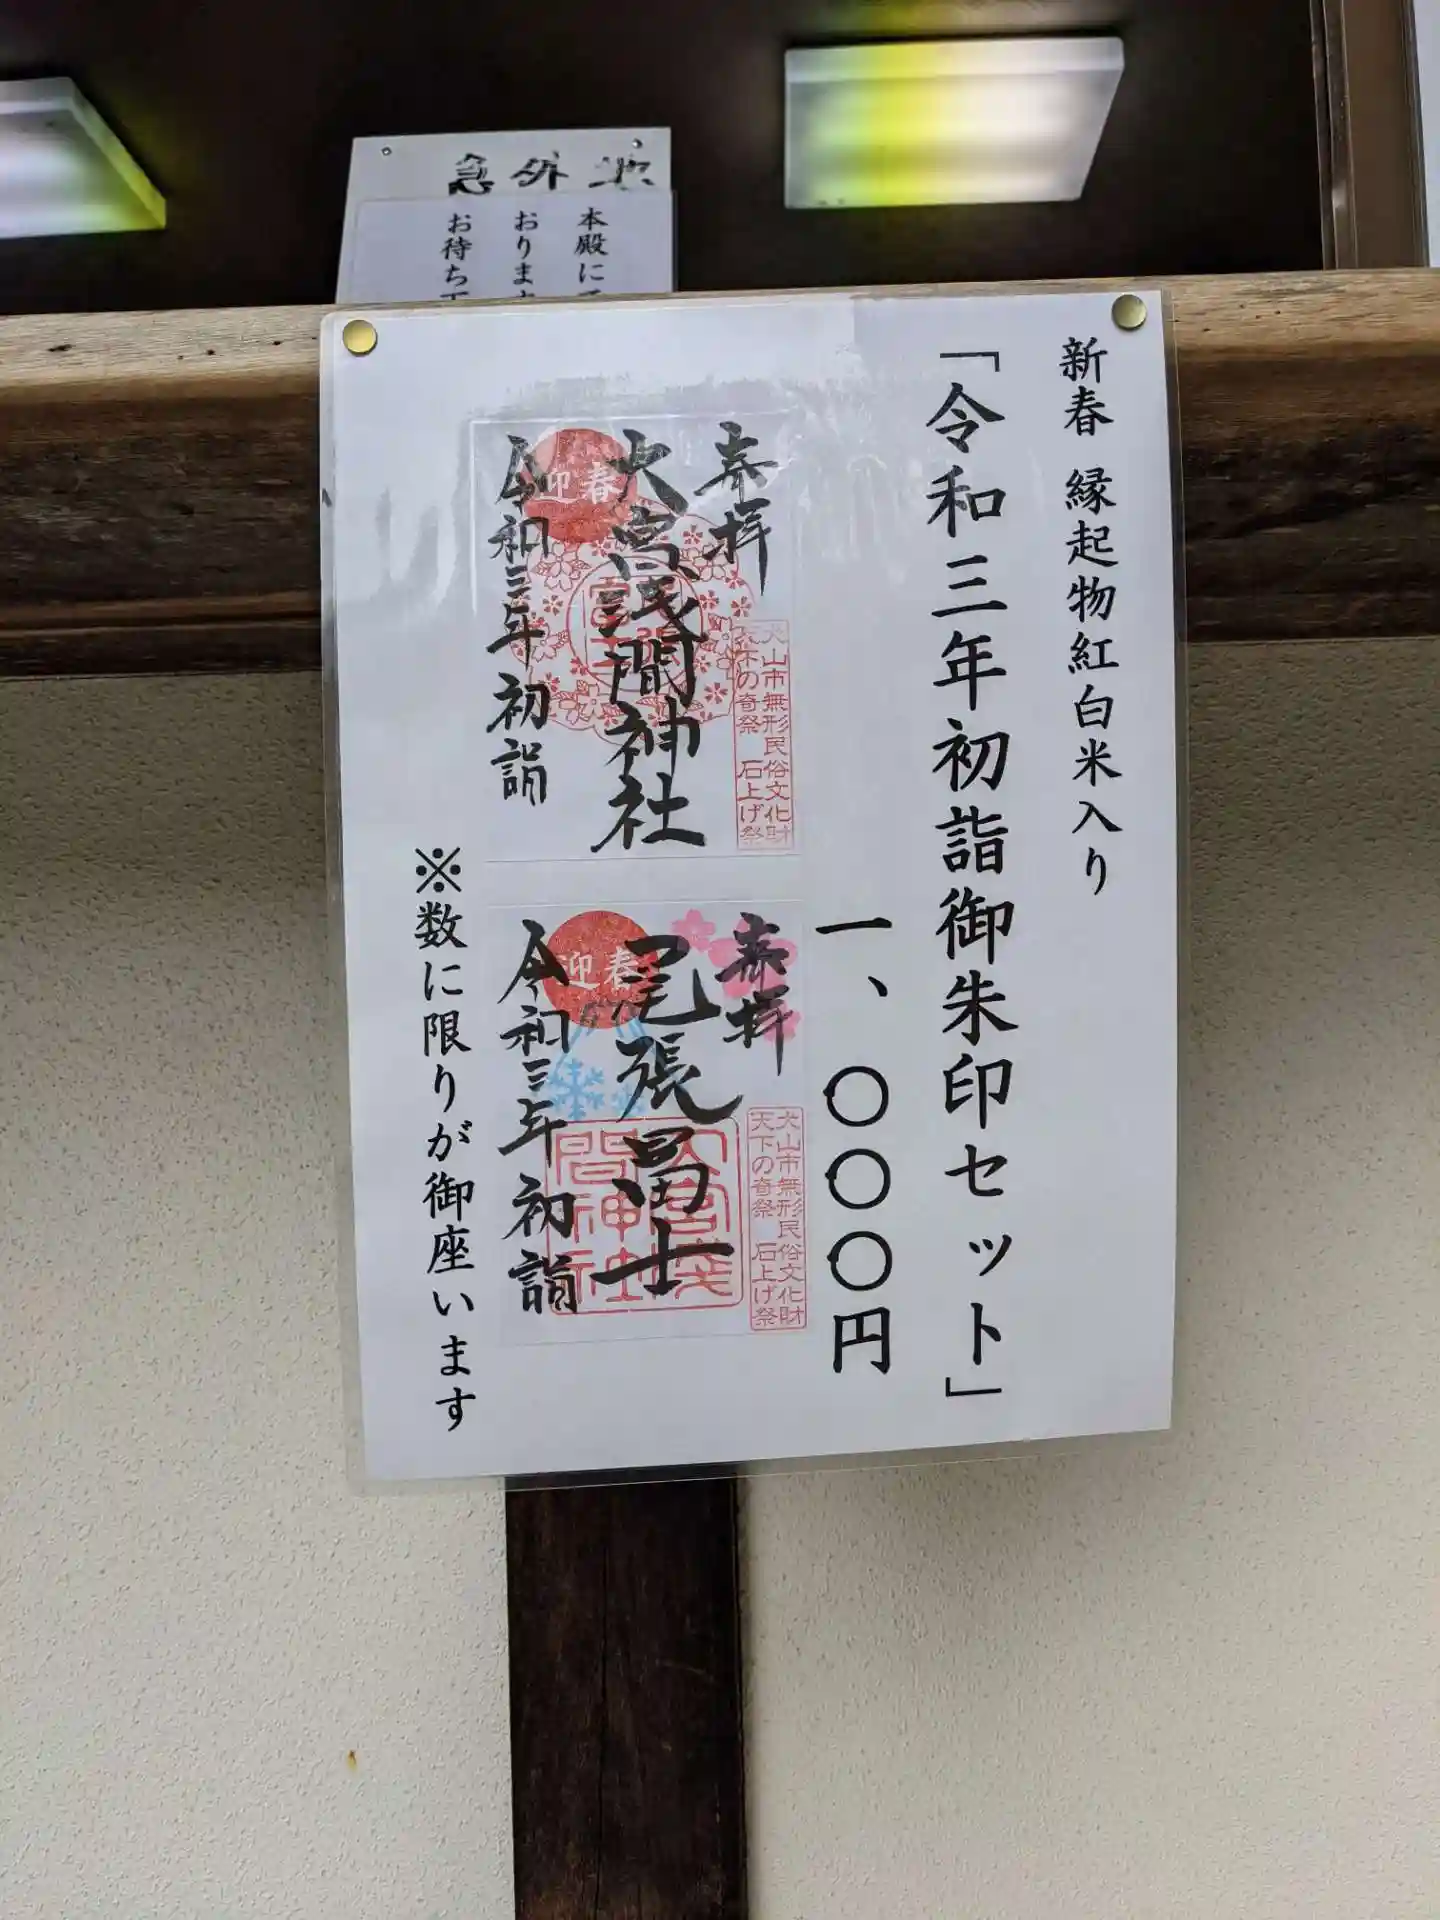 新春 縁起物紅白米入り
「令和三年初詣御朱印セット」
一、〇〇〇円
奉拝
大宮浅間神社
迎春
令和三年 初詣
犬山市無形民俗文化財
天下の奇祭 石上げ祭
奉拝
尾張冨士
迎春
令和三年 初詣
犬山市無形民俗文化財
天下の奇祭 石上げ祭
大宮浅
間神社
※数に限りが御座います
本殿にて
おります
お待ち下